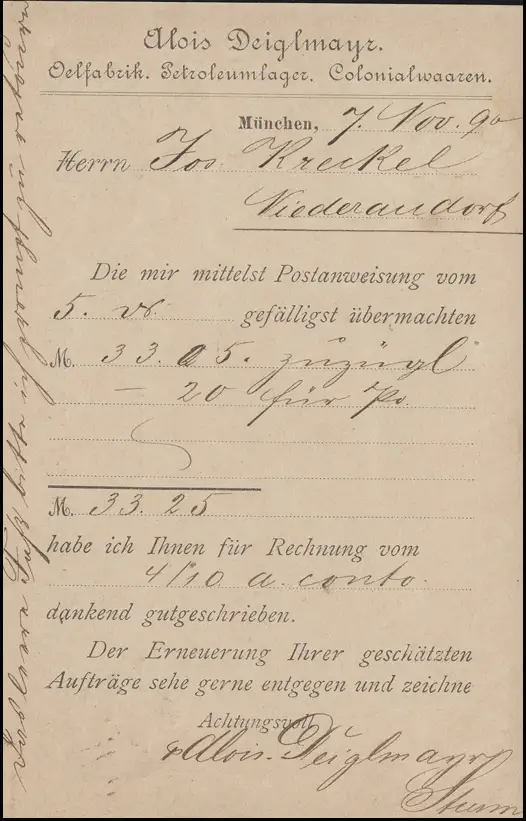 Alois Deiglmayr.
Oelfabrik. Petroleumlager. Colonialwaaren.
München, 7. Nov. 90
Herrn Jos Kreckel
Niederaudorf
Die mir mittelst Postanweisung vom
5. gefälligst übermachten
M. 33.05. zuzügl
— 20 für Po.
M. 33.25
habe ich Ihnen für Rechnung vom
4/10 a. conto.
dankend gutgeschrieben.
Der Erneuerung Ihrer geschätzten
Aufträge sehe gerne entgegen und zeichne
Achtungsvoll
Alois Deiglmayr
Sturm